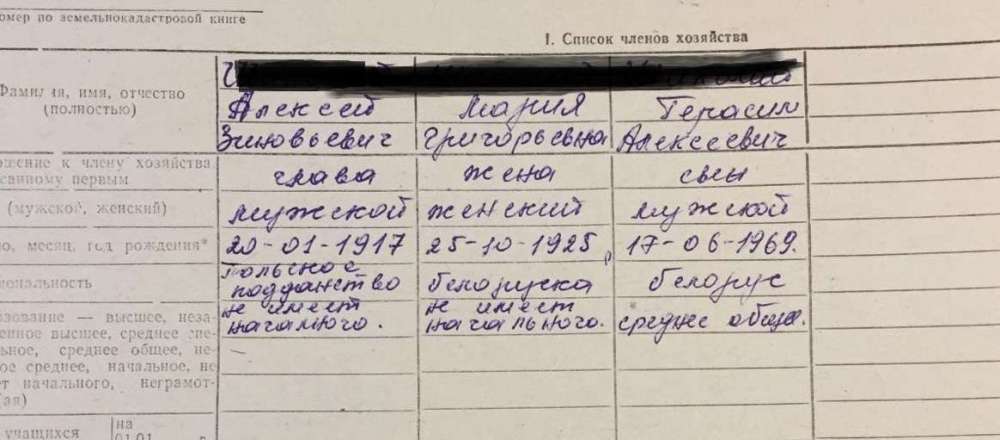 омер по земельнокадастровой книге
I. Список членов хозяйства
Фамилия, имя, отчество (полностью)
Алексей Мария Герасим
Зиновьевич Григорьевна Алексеевич
ошение к члену хозяйства, санному первым
глава жена сын
(мужской, женский)
мужской женский мужской
о, месяц, год рождения*
20-01-1917 25-10-1925 17-06-1969.
ональность
польское подданство белоруска белорус
азование — высшее, неза-
енное высшее, среднее спе-
ьное, среднее общее, не-
ое среднее, начальное, не
ет начального, неграмот-
ая)
не имеет начального. не имеет начального. среднее общее.
учащихся
на
01.01